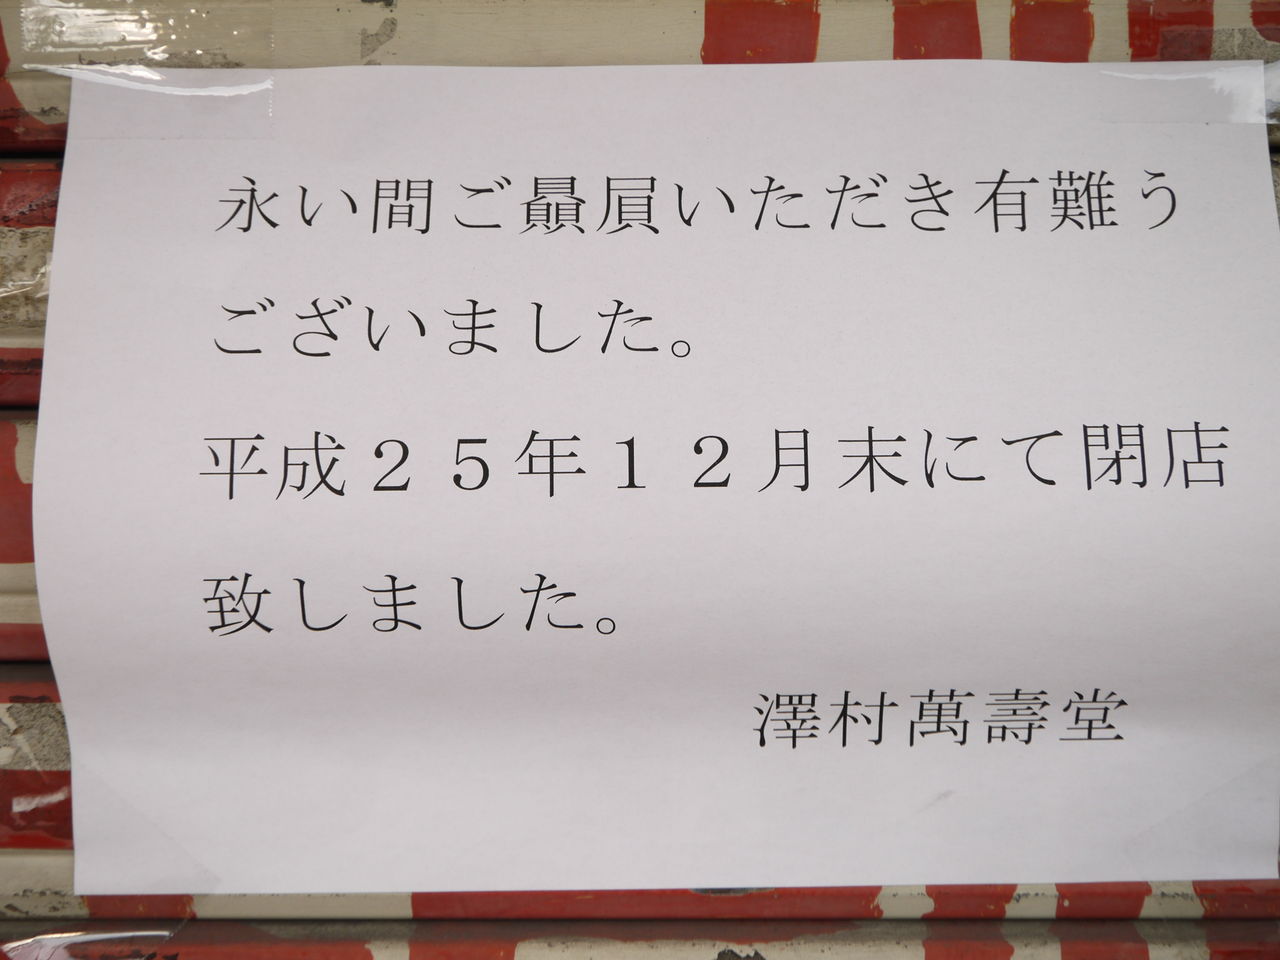 永い間ご贔屓いただき有難う
ございました。
平成２５年１２月末にて閉店
致しました。
澤村萬壽堂